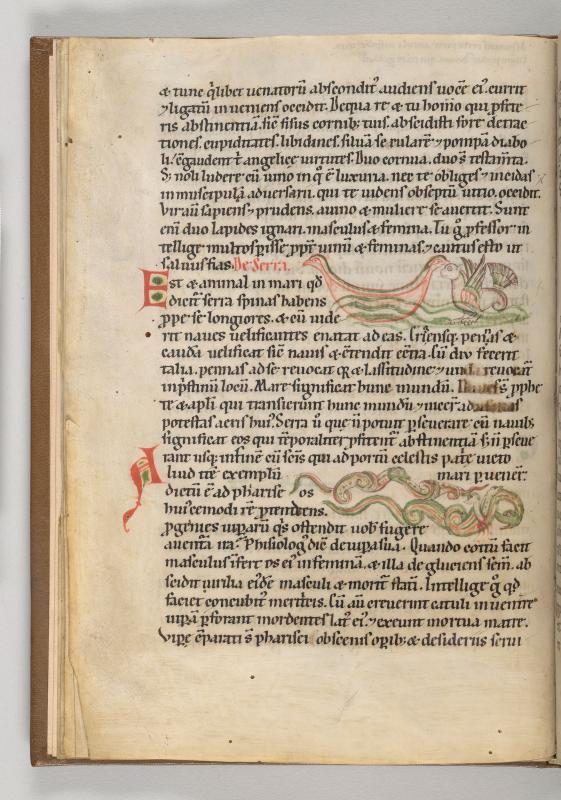 & tunc q̄libet uenatorū abscondit᷒ audiens uocē ei᷒ currit
⁊ ligatū inueniens occidit. De qua re & tu homo qui
abstinentiā. sic̄ fisus cornib; tuis. abscidisti
tiones. cupiditates. libidines. siluā sęcularē ⁊ pompā diabo
li. & gaudent t̄ angelicę uirtutes. Duo cornua. duo s̄ testam̄ta.
noli ludere cū uino in q̄ ē luxuria. nec te obliges ⁊ incidas
in muscipulā aduersarii. qui te uidens obseptū uitio. occidit.
Vir aū sapiens ⁊ prudens. a uino & muliere se auertit. Sunt
enī duo lapides ignari. masculus & femina. Tu g̊ p̄fessor in
tellige multos p̄isse p̄pt̄ uinū & feminas. ⁊ cautus esto ut
saluus fias. De Serra.
Est & animal in mari qd̄
dicit᷒ serra spinas habens
p̄pe se longiores. & cū uide
rit naues uelificantes enatat ad eas.
caudā uelificat sic̄ nauis & c̄tendit
talia. pennas ad se reuocat lassitudine ⁊
in p̄stinū locū. Mare significat hunc mundū. p̄phe
tę & ap̄li qui transierunt hunc mundū
potestas aeris hui᷒. Serra ū que n̄ potuit p̄seuerare cū nauib;
significat eos qui tēporalit̄ abstinentiā s; n̄ p̄seue
rant usq; in finē cū sc̄is qui ad portū celestis patrię
Aliud ite᷒ exemplū mari puener̄.
dictū ē ad pharise os
hui᷒cemodi rē p̄tendens.
p̄genies uiperarū q̄s ostendit uob̄ fugere
a uentura ira. Phisiolog᷒ dic̄ de uipera sua. Quando coitū facit
masculus īfert os ei᷒ in feminā. & illa degluciens sem̄. ab
scidit uirilia ei᷒dē masculi & morit᷒ statī. Intellige g̊ qd̄
faciet concubit᷒ meretricis. Cū aū creuerint catuli in uentre
uiperā p̄forant mordentes lat᷒ ei᷒. ⁊ exeunt mortua matre.
Vipę c̄parati s̄ pharisei obscenis opib; & desideriis serui